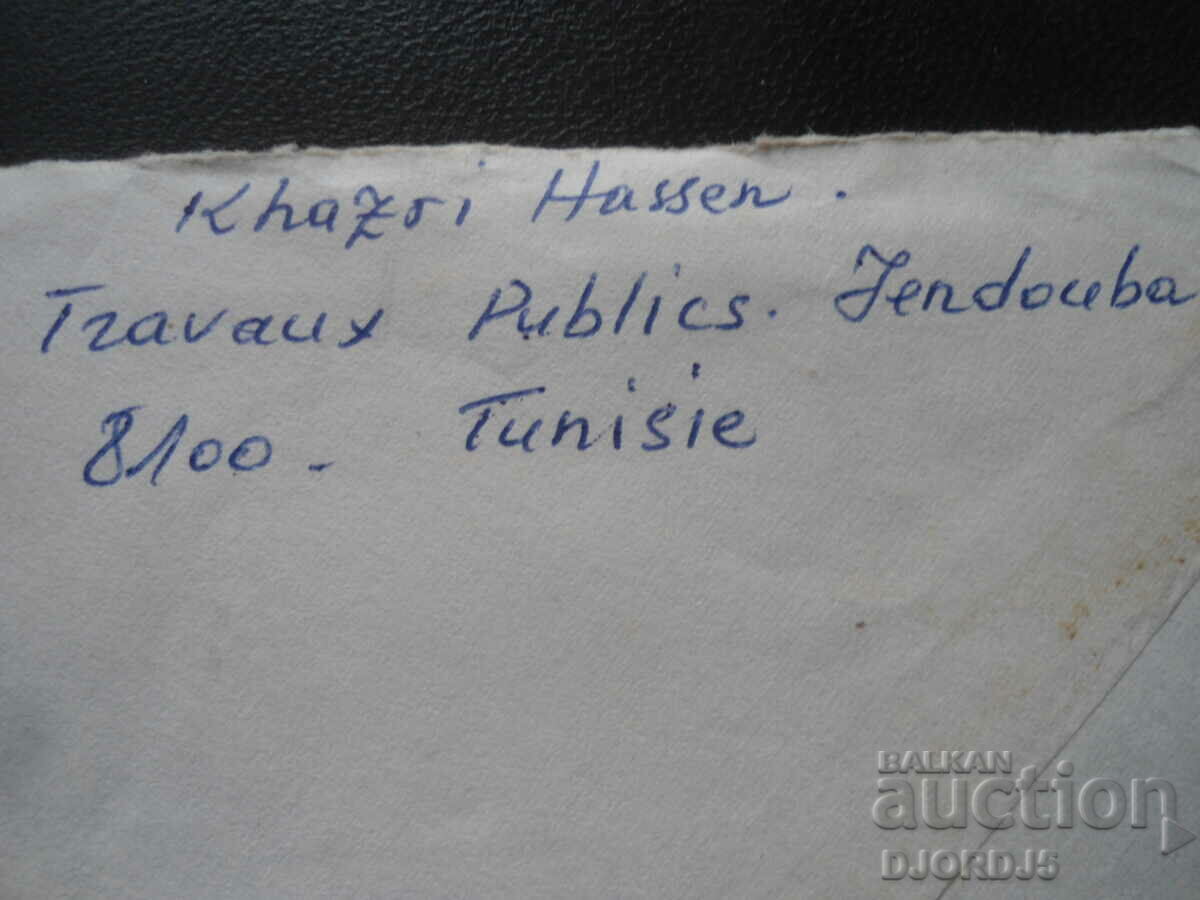 Khazri Hassen.
Travaux Publics. Jendouba
8100- Tunisie
BALKAN
auction
DJORDJ5